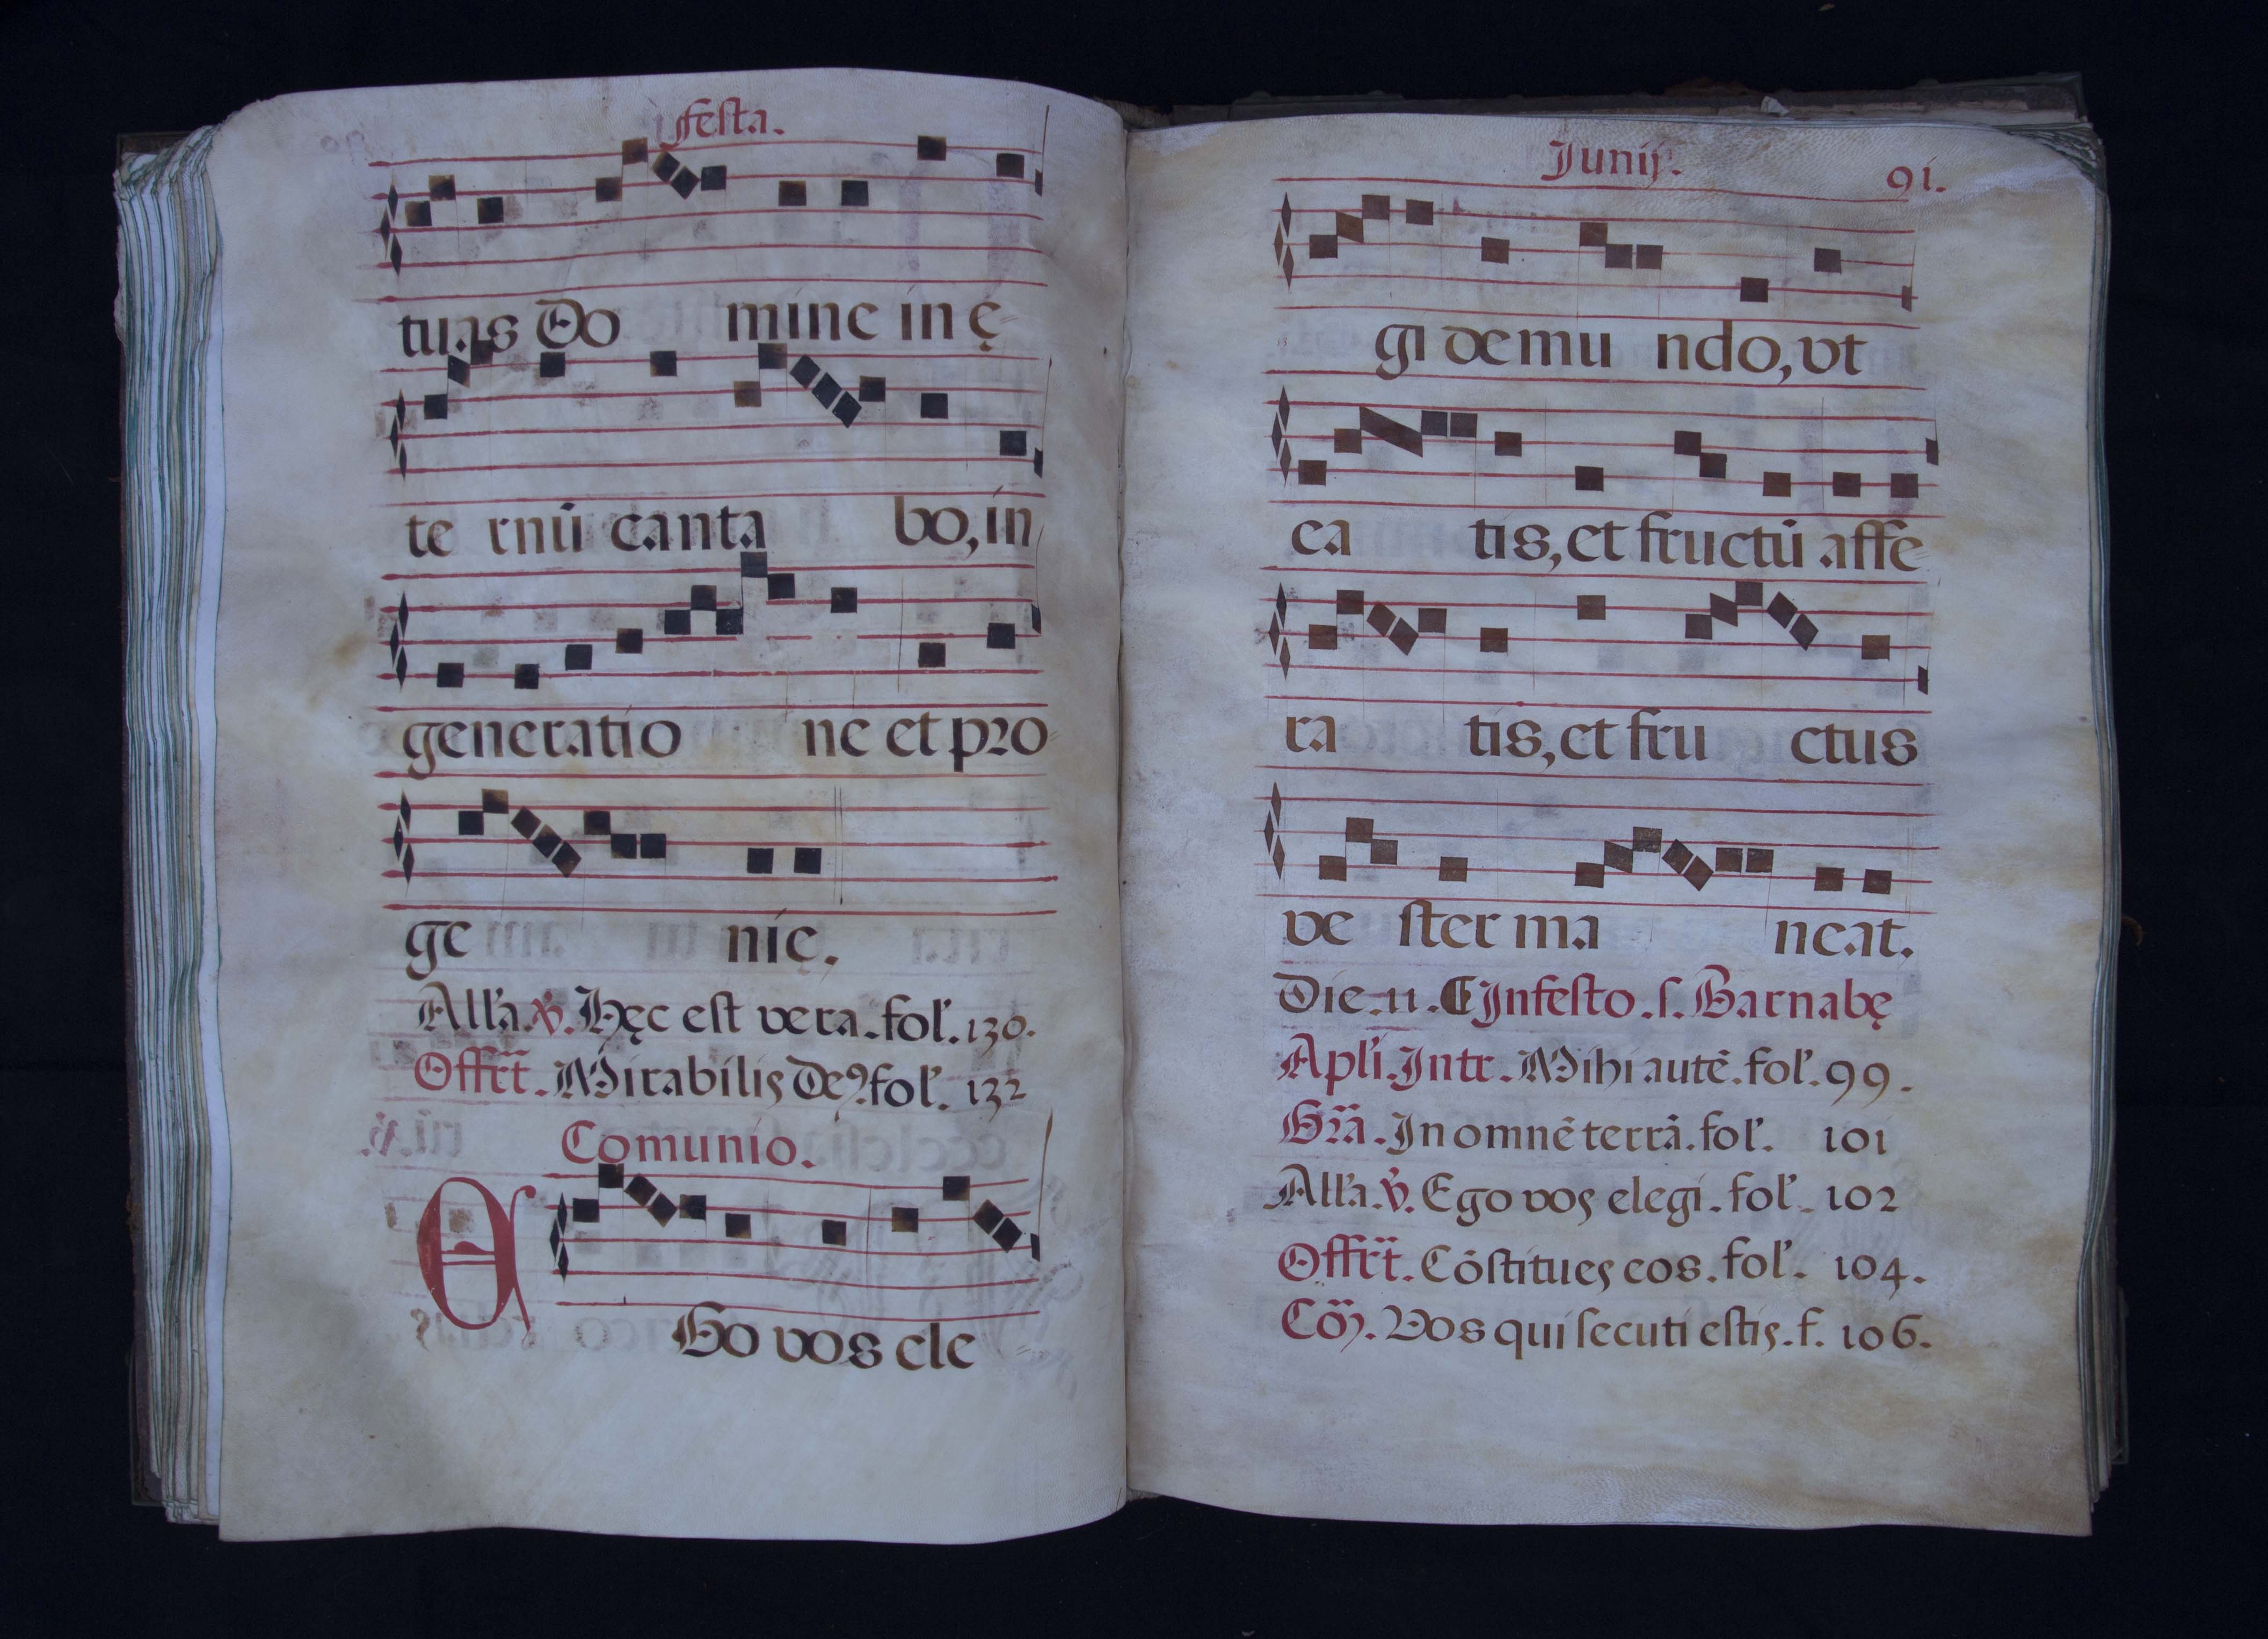 festa.
tuas Do mine in ę-
te rnū canta bo, in
generatio ne et pro-
ge nię.
All'a. ℣. Hęc est vera. fol'. 130.
Offrt. Mirabilis Deꝰ. fol'. 132
Comunio.
EGo vos ele-
Junij. 91.
gi de mu ndo, vt
ea tis, et fructū affe
ra tis, et fru ctus
ve ster ma neat.
Die. 11. In festo. s. Barnabę
Apl'i. Intr. Mihi autē. fol'. 99.
Gra. In omnē terrā. fol'. 101
All'a. ℣. Ego vos elegi. fol'. 102
Offrt. Cōstitues eos. fol'. 104.
Cō. Vos qui secuti estis. f. 106.